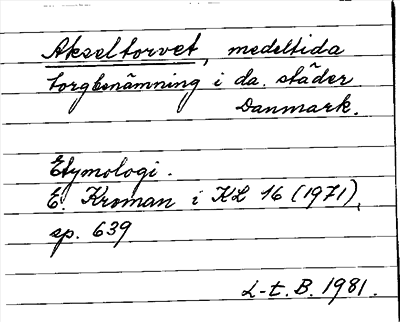 Akseltorvet, medeltida
torgbenämning i da. städer
Danmark.
Etymologi.
E. Kroman i KL 16 (1971),
sp. 639
L-t. B. 1981.